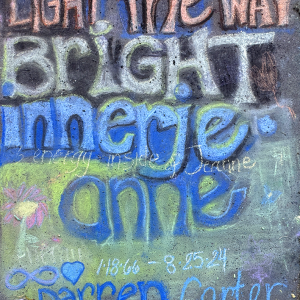 LIGHT THE WAY
BRiGHT
innerje
energy inside of Jeanne
anne
1-18-66 - 8-25-24
Darren Carter